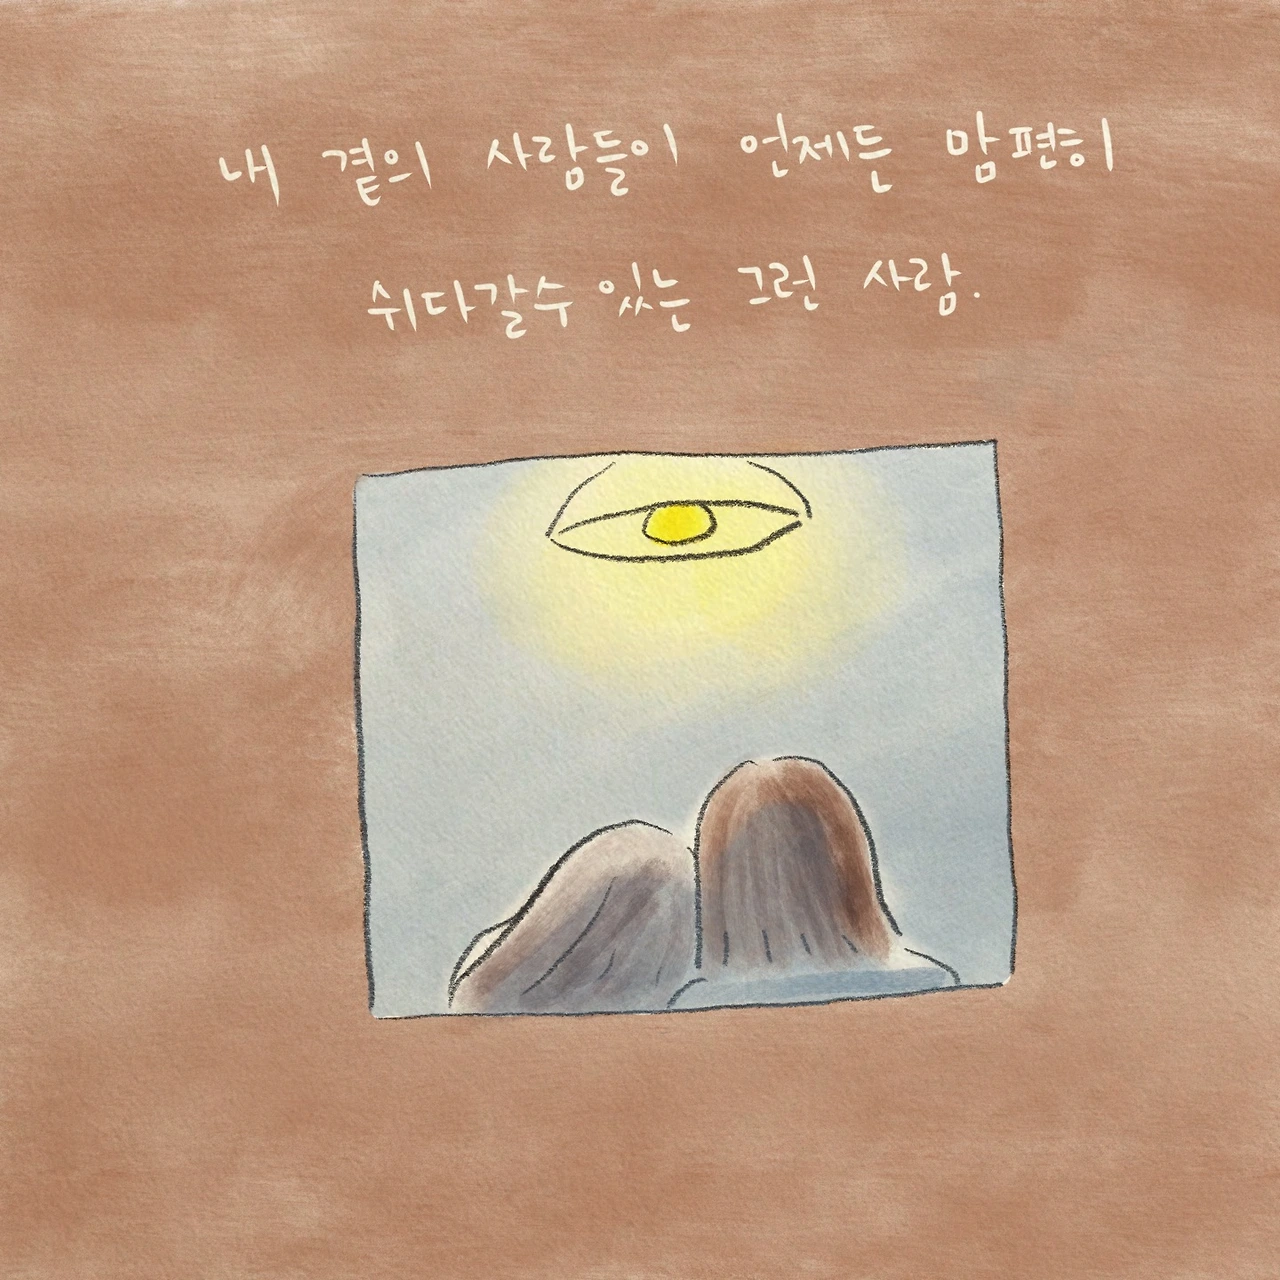 내 곁의 사람들이 언제든 맘편히
쉬다갈수 있는 그런 사람.